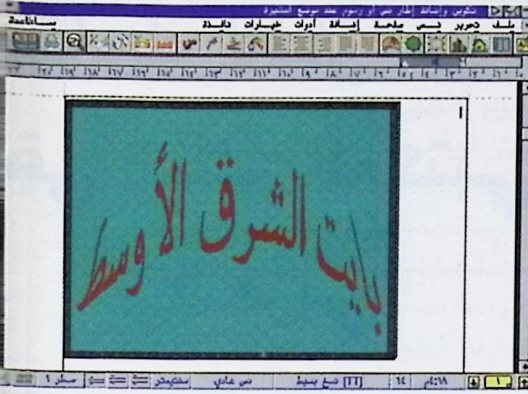 تكوين وإضافة إطار نص أو رسوم عند موضع المشيرة
ملف تحرير نص صفحة إضافة أدوات خيارات نافذة مساعدة
بايت الشرق الأوسط
٤:١٨م ١٤ [TT] نسخ بسيط نص عادي سنتيمتر سطر ١